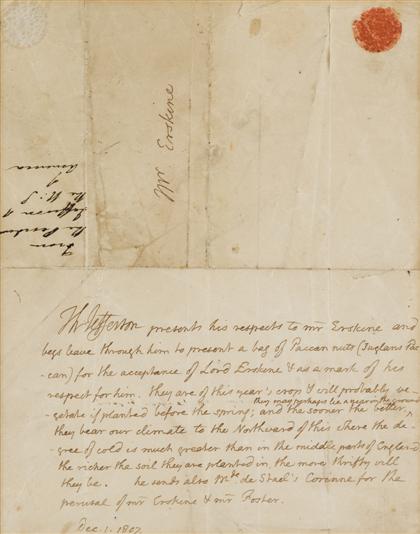 Mr Erskine
From
the Presidt
Jefferson of
the U. S.
of
America
Th Jefferson presents his respects to mr Erskine and
begs leave through him to present a bag of Paccan nuts (Juglans Pac
-can) for the acceptance of Lord Erskine & as a mark of his
respect for him. they are of this year's crop & will probably ve-
they may perhaps lie a year in the ground
-getate if planted before the spring; and the sooner the better,
they bear our climate to the Northward of this where the de-
-gree of cold is much greater than in the middle parts of England
the richer the soil they are planted in, the more thrifty will
they be. he sends also Mde de Stael's Corinne for the
perusal of mr Erskine & mr Foster.
Dec. 1. 1807.